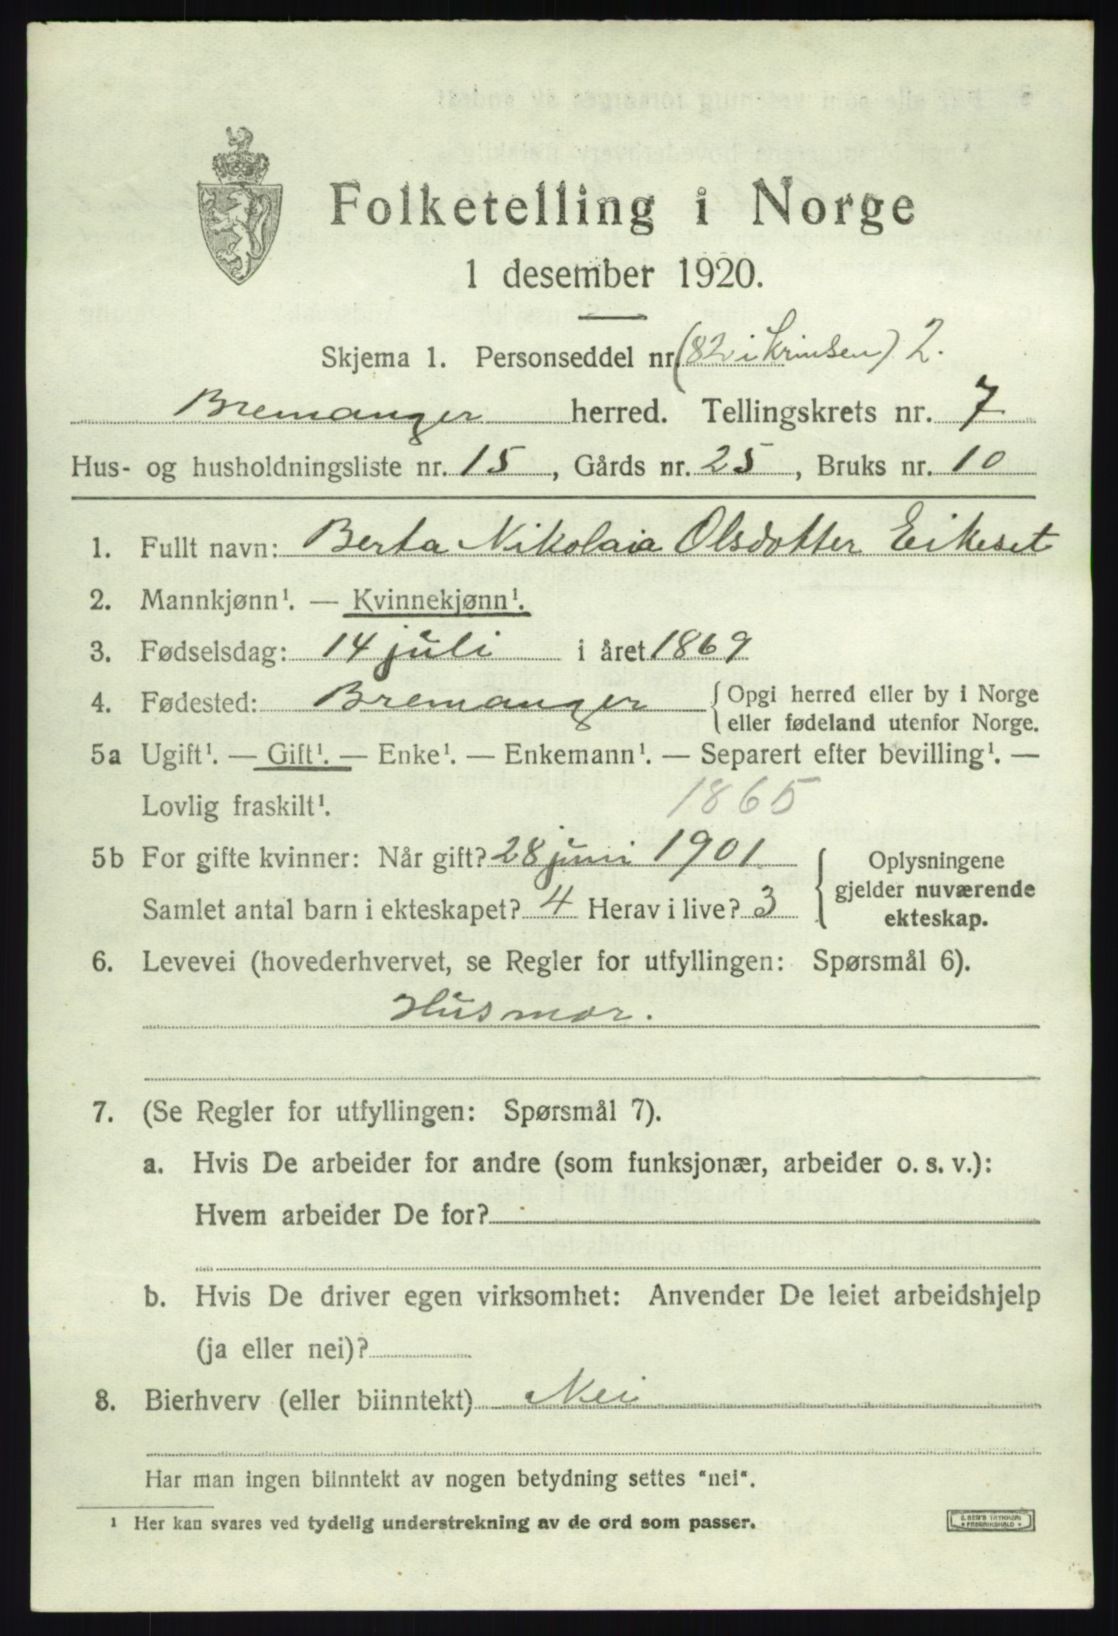 Folketelling i Norge
1 desember 1920.
Skjema 1. Personseddel nr. (82 i Krinsen) 2.
Bremanger herred. Tellingskrets nr. 7
Hus- og husholdningsliste nr. 15, Gårds nr. 25, Bruks nr. 10
1. Fullt navn: Berta Nikolaia Olsdotter Eikeset
2. Mannkjønn¹. — Kvinnekjønn¹.
3. Fødselsdag: 14 juli i året 1869
4. Fødested: Bremanger { Opgi herred eller by i Norge
eller fødeland utenfor Norge.
5a Ugift¹. — Gift¹. — Enke¹. — Enkemann¹. — Separert efter bevilling¹. —
Lovlig fraskilt¹. 1865
5b For gifte kvinner: Når gift? 28 juni 1901.
Samlet antal barn i ekteskapet? 4 Herav i live? 3
{ Oplysningene
gjelder nuværende
ekteskap.
6. Levevei (hovederhvervet, se Regler for utfyllingen: Spørsmål 6).
Husmor.
7. (Se Regler for utfyllingen: Spørsmål 7).
a. Hvis De arbeider for andre (som funksjonær, arbeider o. s. v.):
Hvem arbeider De for?
b. Hvis De driver egen virksomhet: Anvender De leiet arbeidshjelp
(ja eller nei)?
8. Bierhverv (eller biinntekt) Nei
Har man ingen biinntekt av nogen betydning settes "nei".
¹ Her kan svares ved tydelig understrekning av de ord som passer.